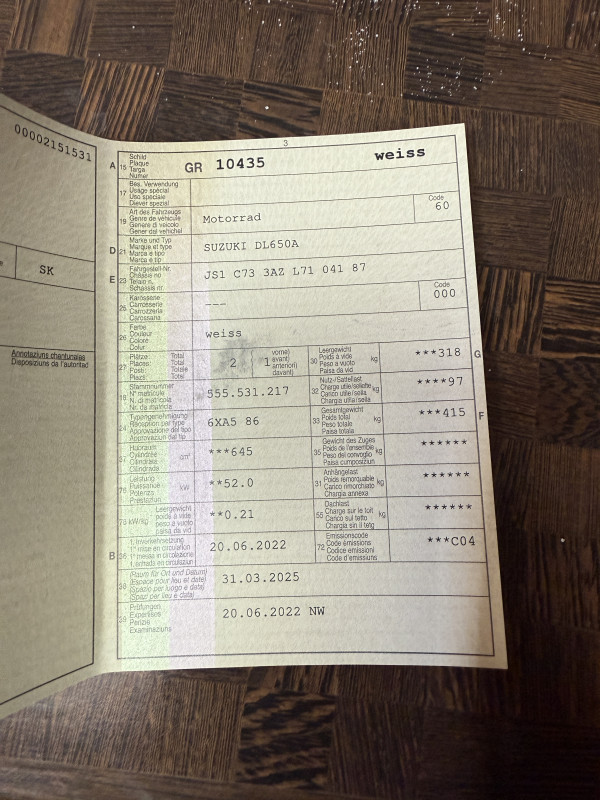 00002151531
SK
Annotaziuns chantunalas
Disposiziuns da l'autoritad
3
A 15 Schild
Plaque
Targa
Numer
GR 10435 weiss
17 Bes. Verwendung
Usage spécial
Uso speciale
Diever spezial
19 Art des Fahrzeugs
Genre de véhicule
Genere di veicolo
Gener dal vehichel
Motorrad
Code
60
D 21 Marke und Typ
Marque et type
Marca e tipo
Marca e tip
SUZUKI DL650A
E 23 Fahrgestell-Nr.
Châssis no
Telaio n.
Schassis nr.
JS1 C73 3AZ L71 041 87
25 Karosserie
Carrosserie
Carrozzeria
Carossaria
---
Code
000
26 Farbe
Couleur
Colore
Colur
weiss
27 Plätze: Total
Places: Total
Posti: Totale
Plazs: Total
2 1
vorne)
avant)
anteriori)
davant)
30 Leergewicht
Poids à vide
Peso a vuoto
Paisa da vid
kg
***318 G
18 Stammnummer
N° matricule
N. di matricola
Nr. da matricla
555.531.217
32 Nutz-/Sattellast
Charge utile/sellette
Carico utile/sella
Chargia utila/sella
kg
****97
24 Typengenehmigung
Réception par type
Approvazione del tipo
Approvaziun dal tip
6XA5 86
33 Gesamtgewicht
Poids total
Peso totale
Paisa totala
kg
***415 F
37 Hubraum
Cylindrée
Cilindrata
Cilindrada
cm³
***645
35 Gewicht des Zuges
Poids de l'ensemble
Peso del convoglio
Paisa cumposiziun
kg
******
76 Leistung
Puissance
Potenza
Prestaziun
kW
**52.0
31 Anhängelast
Poids remorquable
Carico rimorchiato
Chargia annexa
kg
******
78 kW/kg Leergewicht
poids à vide
peso a vuoto
paisa da vid
**0.21
55 Dachlast
Charge sur le toit
Carico sul tetto
Chargia sin il tetg
kg
******
B 36 1. Inverkehrsetzung
1re mise en circulation
1a messa in circolazione
1. entrada en circulaziun
20.06.2022
72 Emissionscode
Code émissions
Codice emissioni
Code d'emissiuns
***C04
38 (Raum für Ort und Datum)
(Espace pour lieu et date)
(Spazio per luogo e data)
(Spazi per lieu e data)
31.03.2025
39 Prüfungen
Expertises
Perizie
Examinaziuns
20.06.2022 NW